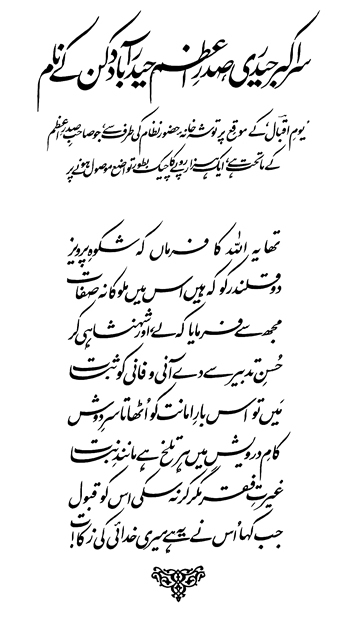 سر اکبر حیدری صدرِ اعظم حیدرآباد دکن کے نام
’یومِ اقبال‘ کے موقع پر توشہ خانۂ حضور نظام کی طرف سے، جو صاحبِ صدرِ اعظم
کے ماتحت ہے، ایک ہزار روپے کا چیک بطور تواضع موصول ہونے پر
تھا یہ اللہ کا فرماں کہ شکوہِ پرویز
دو قلندر کو کہ ہیں اس میں ملوکانہ صفات
مجھ سے فرمایا کہ لے، اور شہنشاہی کر
حُسنِ تدبیر سے دے آنی و فانی کو ثبات
مَیں تو اس بارِ امانت کو اُٹھاتا سرِ دوش
کامِ درویش میں ہر تلخ ہے مانندِ نبات
غیرتِ فقر مگر کر نہ سکی اس کو قبول
جب کہا اُس نے یہ ہے میری خدائی کی زکات!